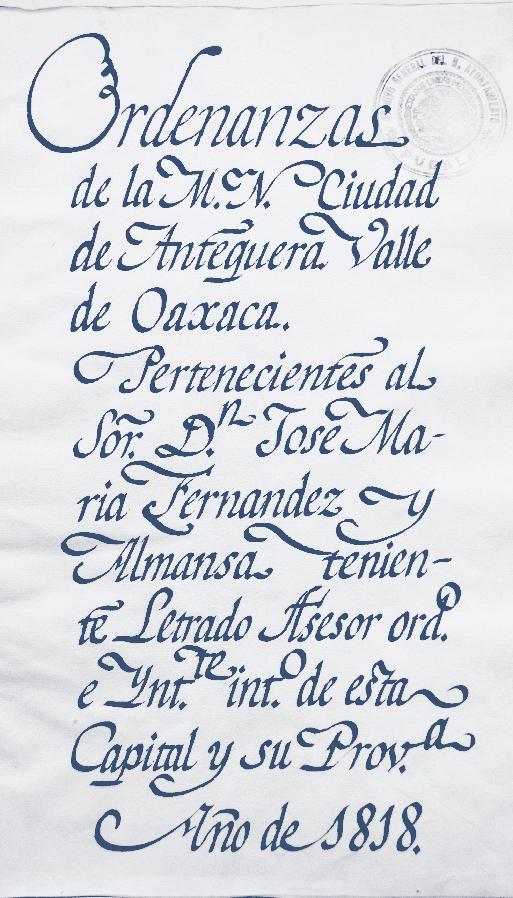 Ordenanzas
de la M. N. Ciudad
de Antequera Valle
de Oaxaca..
Pertenecientes al
Sor. D.n José Ma-
ria Fernandez y
Almansa tenien-
te Letrado Asesor ord.o
e Ynt.te int.o de esta
Capital y su Prov.a
Año de 1818.